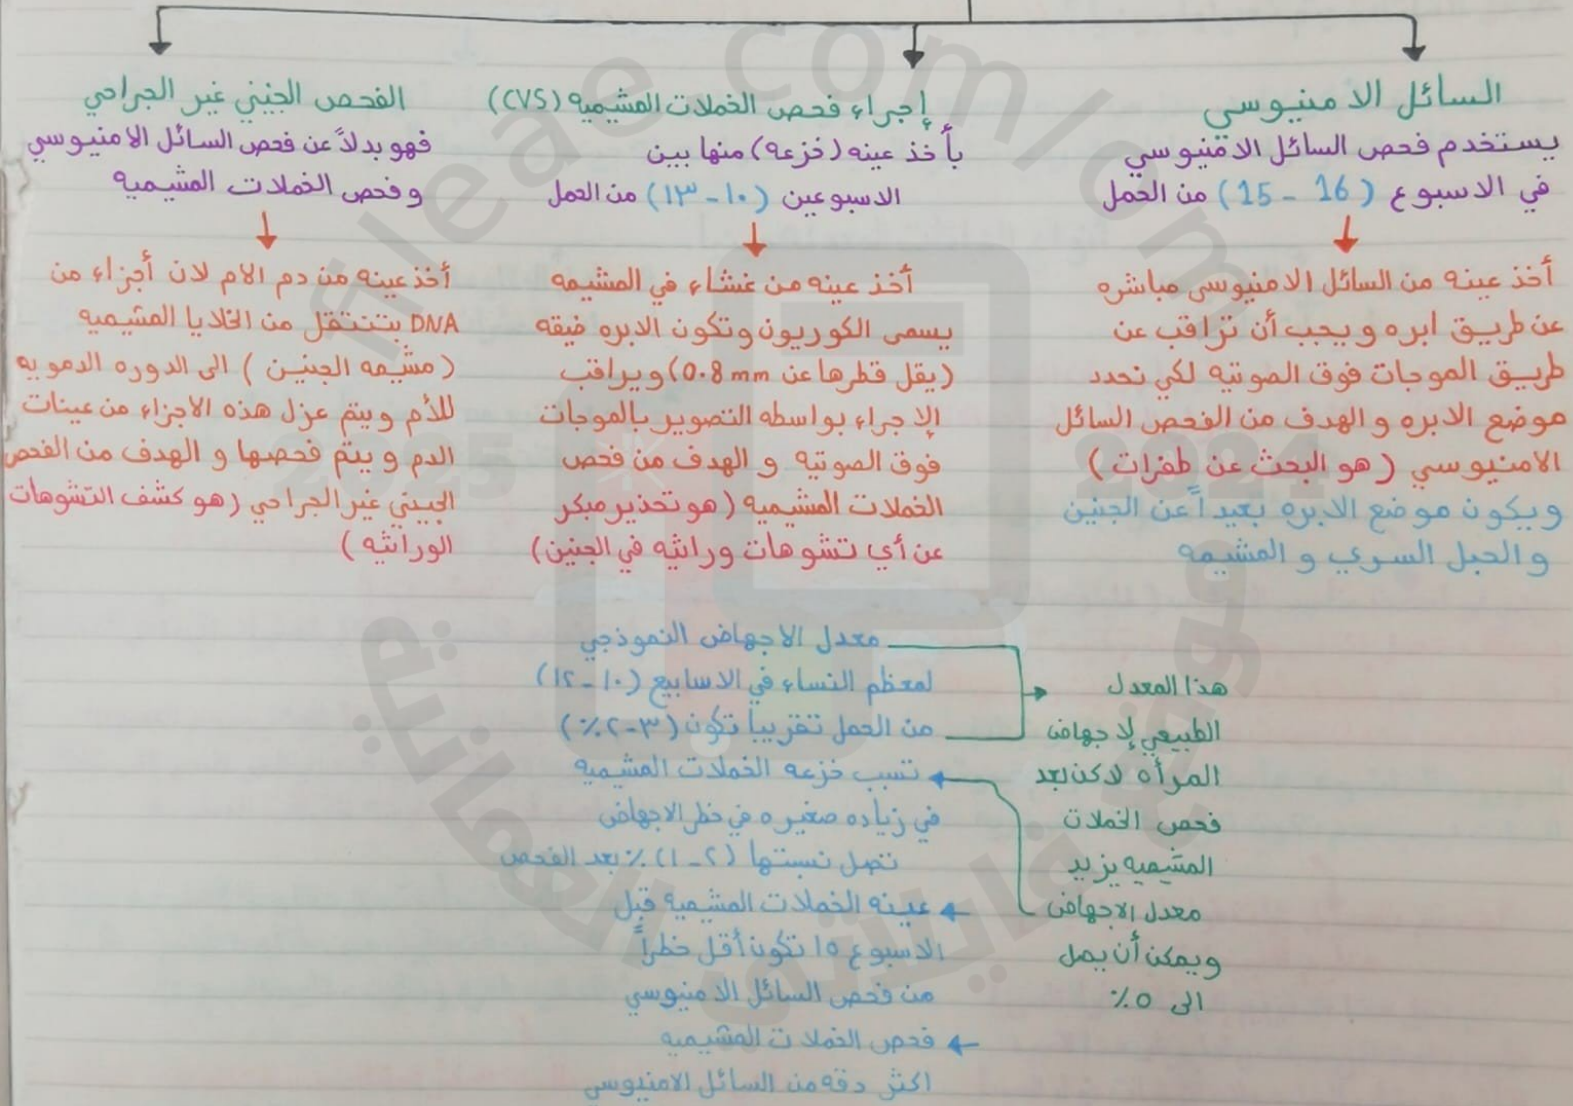 السائل الامنيوسي
يستخدم فحص السائل الامنيوسي
في الاسبوع (15 - 16) من الحمل
أخذ عينه من السائل الامنيوسي مباشره
عن طريق ابره ويجب أن تراقب عن
طريق الموجات فوق الصوتيه لكي نحدد
موضع الابره و الهدف من الفحص السائل
الامنيوسي (هو البحث عن طفرات)
ويكون موضع الابره بعيداً عن الجنين
والحبل السري و المشيمه
إجراء فحص الخملات المشيميه (CVS)
بأخذ عينه (خزعه) منها بين
الاسبوعين (١٠-١٣) من الحمل
أخذ عينه من غشاء في المشيمه
يسمى الكوريون وتكون الابره ضيقه
(يقل قطرها عن 0.8 mm) ويراقب
الإجراء بواسطه التصوير بالموجات
فوق الصوتيه و الهدف من فحص
الخملات المشيميه (هو تحذير مبكر
عن أي تشوهات وراثيه في الجنين)
الفحص الجيني غير الجراحي
فهو بدلاً عن فحص السائل الامنيوسي
وفحص الخملات المشيميه
أخذ عينه من دم الام لان أجزاء من
DNA بتنتقل من الخلايا المشيميه
(مشيمه الجنين) الى الدوره الدمويه
للأم ويتم عزل هذه الاجزاء من عينات
الدم ويتم فحصها و الهدف من الفحص
الجيني غير الجراحي (هو كشف التشوهات
الوراثيه)
معدل الاجهاض النموذجي
لمعظم النساء في الاسابيع (١٠-١٢)
من الحمل تقريباً تكون (٣-٢٪)
تسبب خزعه الخملات المشيميه
في زياده صغيره في خطر الاجهاض
تصل نسبتها (٢-١)٪ بعد الفحص
عينه الخملات المشيميه قبل
الاسبوع ١٥ تكون أقل خطراً
من فحص السائل الامنيوسي
فحص الخملات المشيميه
اكثر دقه من السائل الامنيوسي
هذا المعدل
الطبيعي لإجهاض
المرأه لاكن بعد
فحص الخملات
المشيميه يزيد
معدل الاجهاض
ويمكن أن يصل
الى ٥٪
fileae.com/om
2024
2025